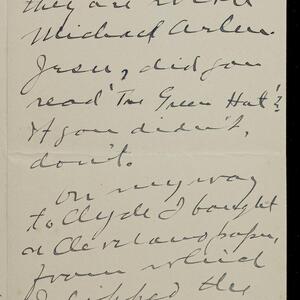 they are with
Michael Arlen.
Jesu, did you
read 'The Green Hat'?
If you didn't,
don't.
On my way
to Clyde I bought
a Cleveland paper,
from which
I clipped the